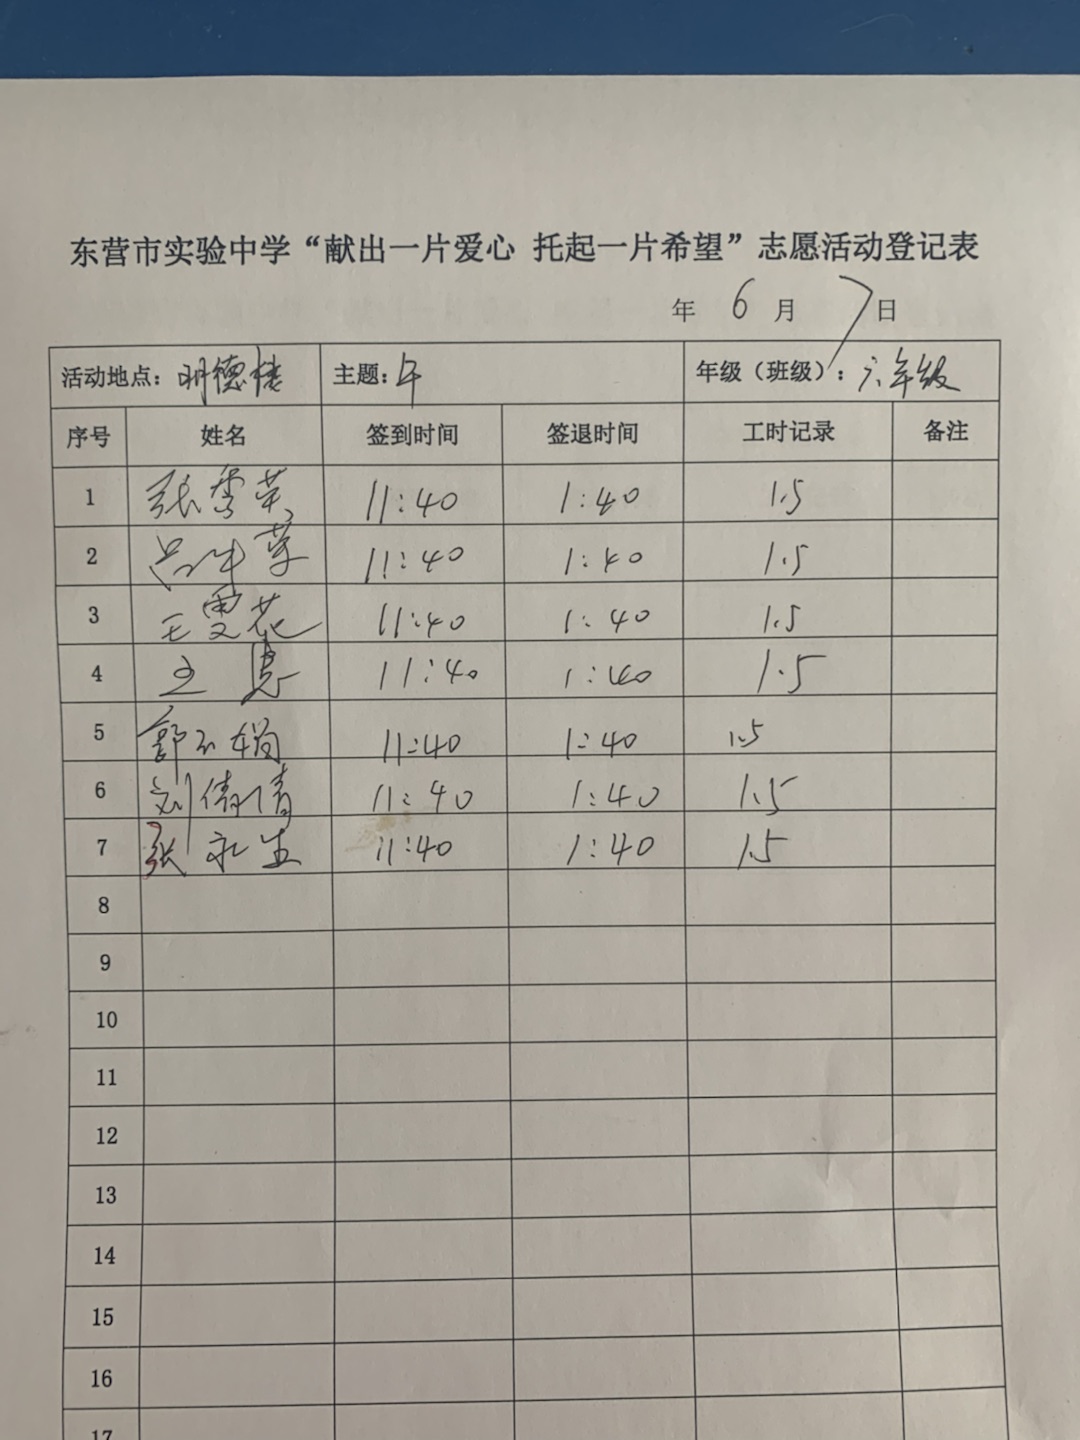 东营市实验中学“献出一片爱心 托起一片希望”志愿活动登记表
年 6 月 7 日
活动地点：明德楼 主题：午 年级（班级）：六年级
序号 姓名 签到时间 签退时间 工时记录 备注
1 张秀英 11:40 1:40 1.5
2 11:40 1:40 1.5
3 王雯花 11:40 1:40 1.5
4 王慧 11:40 1:40 1.5
5 郭 娟 11:40 1:40 1.5
6 刘倩倩 11:40 1:40 1.5
7 张永生 11:40 1:40 1.5
8
9
10
11
12
13
14
15
16
17